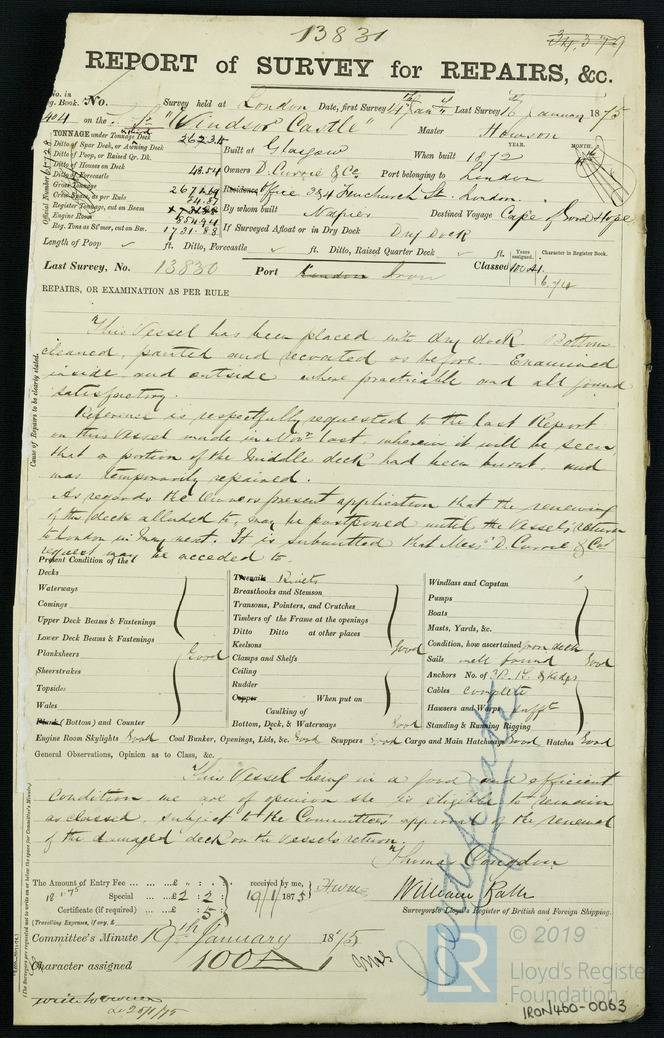 13831
34,379
REPORT of SURVEY for REPAIRS, &c.
No. in
Reg. Book. No. Survey held at London Date, first Survey 4th Jany Last Survey 16th January 1875
404 on the "Windsor Castle" Master Howson
TONNAGE under Tonnage Deck 2623.15
Ditto of Spar Deck, or Awning Deck
Ditto of Poop, or Raised Qr. Dk.
Ditto of Houses on Deck 48.54
Ditto of Forecastle
Gross Tonnage
Crew Space, as per Rule
Register Tonnage, cut on Beam
Engine Room
Reg. Tons as St'mer, cut on Bm. 1731.88
Official Number
Built at Glasgow When built 1872
YEAR. MONTH.
Owners D. Currie & Co Port belonging to London
Residence Office 3 & 4 Fenchurch St. London.
By whom built Napier Destined Voyage Cape of Good Hope
If Surveyed Afloat or in Dry Dock Dry Dock
Length of Poop ft. Ditto, Forecastle ft. Ditto, Raised Quarter Deck ft.
Last Survey, No. 13830 Port London Iron Classed 100A1. 6.74
Years assigned. Character in Register Book.
REPAIRS, OR EXAMINATION AS PER RULE
Cause of Repairs to be clearly stated.
This Vessel has been placed into dry dock. Bottom
cleaned, painted and recoated as before. Examined
inside and outside where practicable and all found
satisfactory.
Reference is respectfully requested to the last Report
on this Vessel made in Novr last, wherein it will be seen
that a portion of the Middle deck had been burnt, and
was temporarily repaired.
As regards the Owners present application that the renewing
of the deck alluded to, may be postponed until the Vessel's return
to London in May next. It is submitted that Messrs D. Currie & Cos
request may be acceded to.
Present Condition of the
Decks
Waterways
Comings
Upper Deck Beams & Fastenings
Lower Deck Beams & Fastenings
Planksheers Good
Sheerstrakes
Topsides
Wales
Plank (Bottom) and Counter
Treenails Rivets
Breasthooks and Stemson
Transoms, Pointers, and Crutches
Timbers of the Frame at the openings
Ditto Ditto at other places
Keelsons Good
Clamps and Shelfs
Ceiling
Rudder
Copper When put on
Caulking of
Bottom, Deck, & Waterways Good
Windlass and Capstan
Pumps
Boats
Masts, Yards, &c.
Condition, how ascertained from deck
Sails well found Good
Anchors No. of 3B. 1S. & Kedgs
Cables Complete
Hawsers and Warps sufft
Standing & Running Rigging
Engine Room Skylights Good Coal Bunker, Openings, Lids, &c. Good Scuppers Good Cargo and Main Hatchways Good Hatches Good
General Observations, Opinion as to Class, &c.
This Vessel being in a good and efficient
condition we are of opinion she is eligible to remain
as classed, subject to the Committees approval of the renewal
of the damaged deck on the Vessel's return.
Thomas Congdon
William Rath
Surveyors to Lloyd's Register of British and Foreign Shipping.
The Amount of Entry Fee ... £ : : received by me,
Special ... £ 2 : 2 : 19/1/1875
Certificate (if required) ... £ : 5
(Travelling Expenses, if any, £
Committee's Minute 19th January 1875
Character assigned 100A
25/1/75
© 2019
LR
Lloyd's Register
Foundation
IRON460-0063